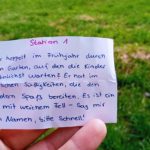 Station 1
hoppelt im Frühjahr durch
Garten, auf den die Kinder
warten? Er hat im
Süßigkeiten, die den
Spaß bereiten. Es ist ein
mit weichem Fell - Sag mir
Namen, bitte schnell!